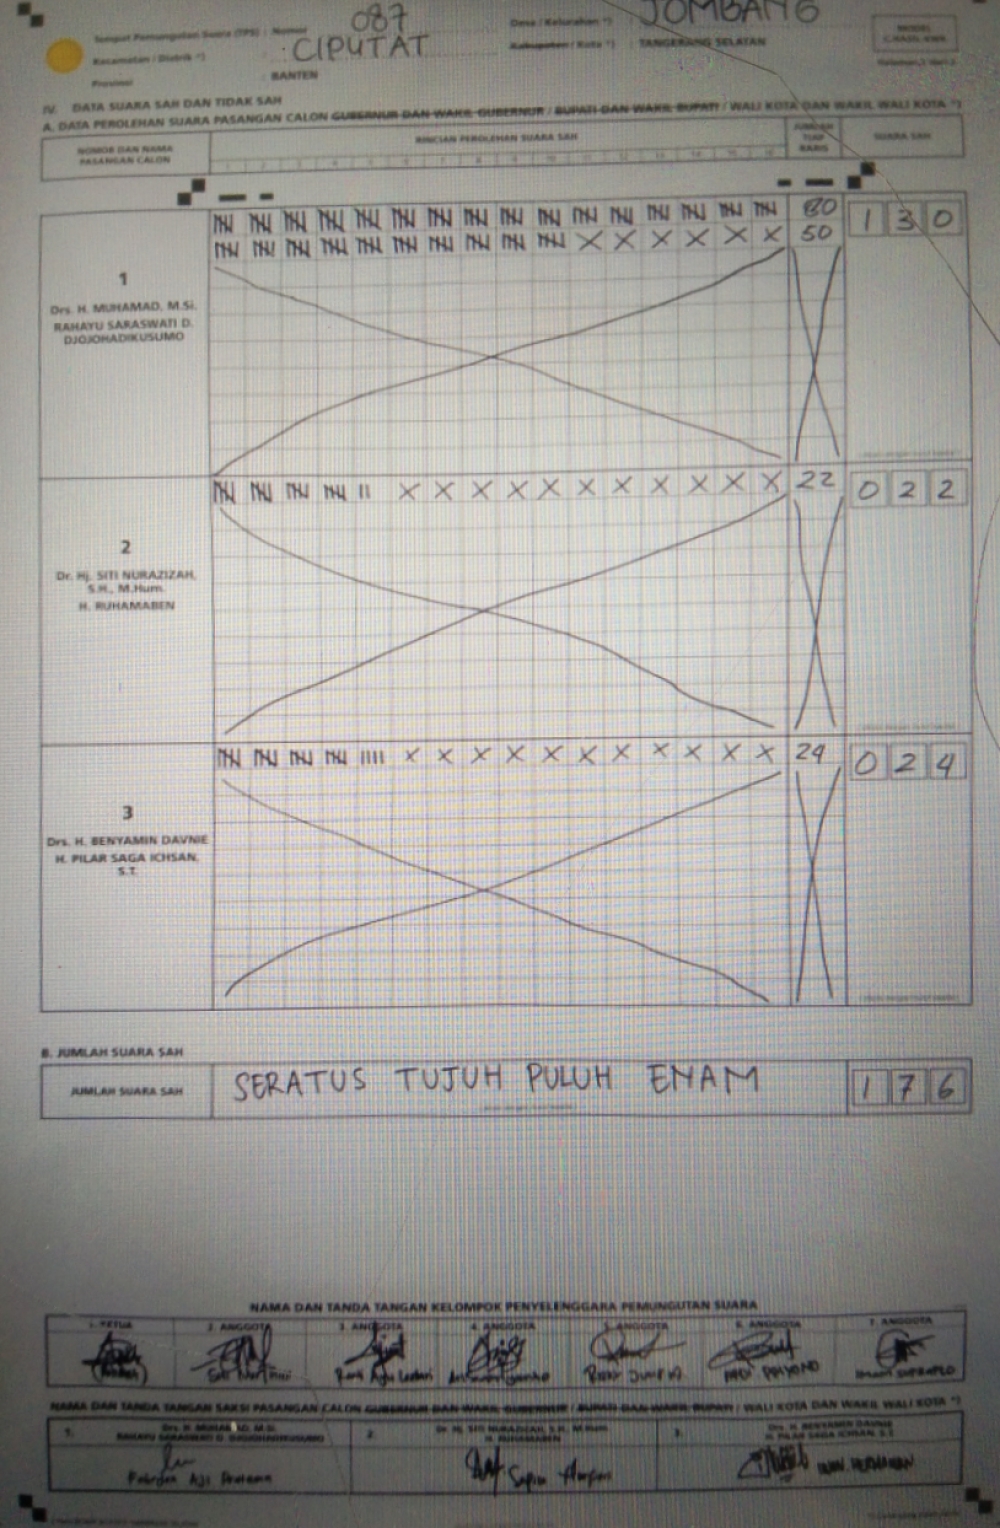 Tempat Pemungutan Suara (TPS) : Nomor 087 Desa / Kelurahan *) : JOMBANG
Kecamatan / Distrik *) : CIPUTAT Kabupaten / Kota *) : TANGERANG SELATAN
Provinsi : BANTEN
MODEL
C.HASIL-KWK
IV. DATA SUARA SAH DAN TIDAK SAH
A. DATA PEROLEHAN SUARA PASANGAN CALON GUBERNUR DAN WAKIL GUBERNUR / BUPATI DAN WAKIL BUPATI / WALI KOTA DAN WAKIL WALI KOTA *)
NOMOR DAN NAMA PASANGAN CALON
RINCIAN PEROLEHAN SUARA SAH
1 2 3 4 5 6 7 8 9 10 11 12 13 14 15 16
JUMLAH TIAP BARIS
SUARA SAH
80
50
1 3 0
1
Drs. H. MUHAMAD, M.Si.
RAHAYU SARASWATI D.
DJOJOHADIKUSUMO
22
0 2 2
2
Dr. Hj. SITI NURAZIZAH,
S.H., M.Hum.
H. RUHAMABEN
24
0 2 4
3
Drs. H. BENYAMIN DAVNIE
H. PILAR SAGA ICHSAN,
S.T.
B. JUMLAH SUARA SAH
JUMLAH SUARA SAH SERATUS TUJUH PULUH ENAM 1 7 6
NAMA DAN TANDA TANGAN KELOMPOK PENYELENGGARA PEMUNGUTAN SUARA
1. KETUA 2. ANGGOTA 3. ANGGOTA 4. ANGGOTA 5. ANGGOTA 6. ANGGOTA 7. ANGGOTA
NAMA DAN TANDA TANGAN SAKSI PASANGAN CALON GUBERNUR DAN WAKIL GUBERNUR / BUPATI DAN WAKIL BUPATI / WALI KOTA DAN WAKIL WALI KOTA *)
1. Drs. H. MUHAMAD, M.Si.
RAHAYU SARASWATI D. DJOJOHADIKUSUMO
2. Dr. Hj. SITI NURAZIZAH, S.H., M.Hum.
H. RUHAMABEN
3. Drs. H. BENYAMIN DAVNIE
H. PILAR SAGA ICHSAN, S.T.